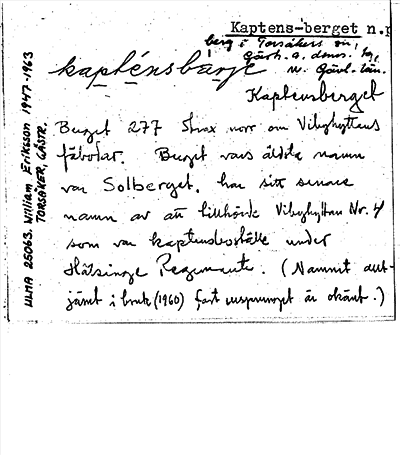 Kaptens-berget n.p
berg i Torsåkers sn,
Gästr. ö. doms. hg,
kapténsbärje nv. Gävl. län.
Kaptensberget
Berget 277 strax norr om Vibyhyttans
fäbodar. Berget vars äldsta namn
var Solberget, har sitt senare
namn av att tillhörde Vibyhyttan Nr. 4
som var kaptensboställe under
Hälsinge Regemente. (Namnet allt-
jämt i bruk (1960) fast ursprunget är okänt.)
ULMA 25063. William Eriksson 1947-1963
TORSÅKER, GÄSTR.